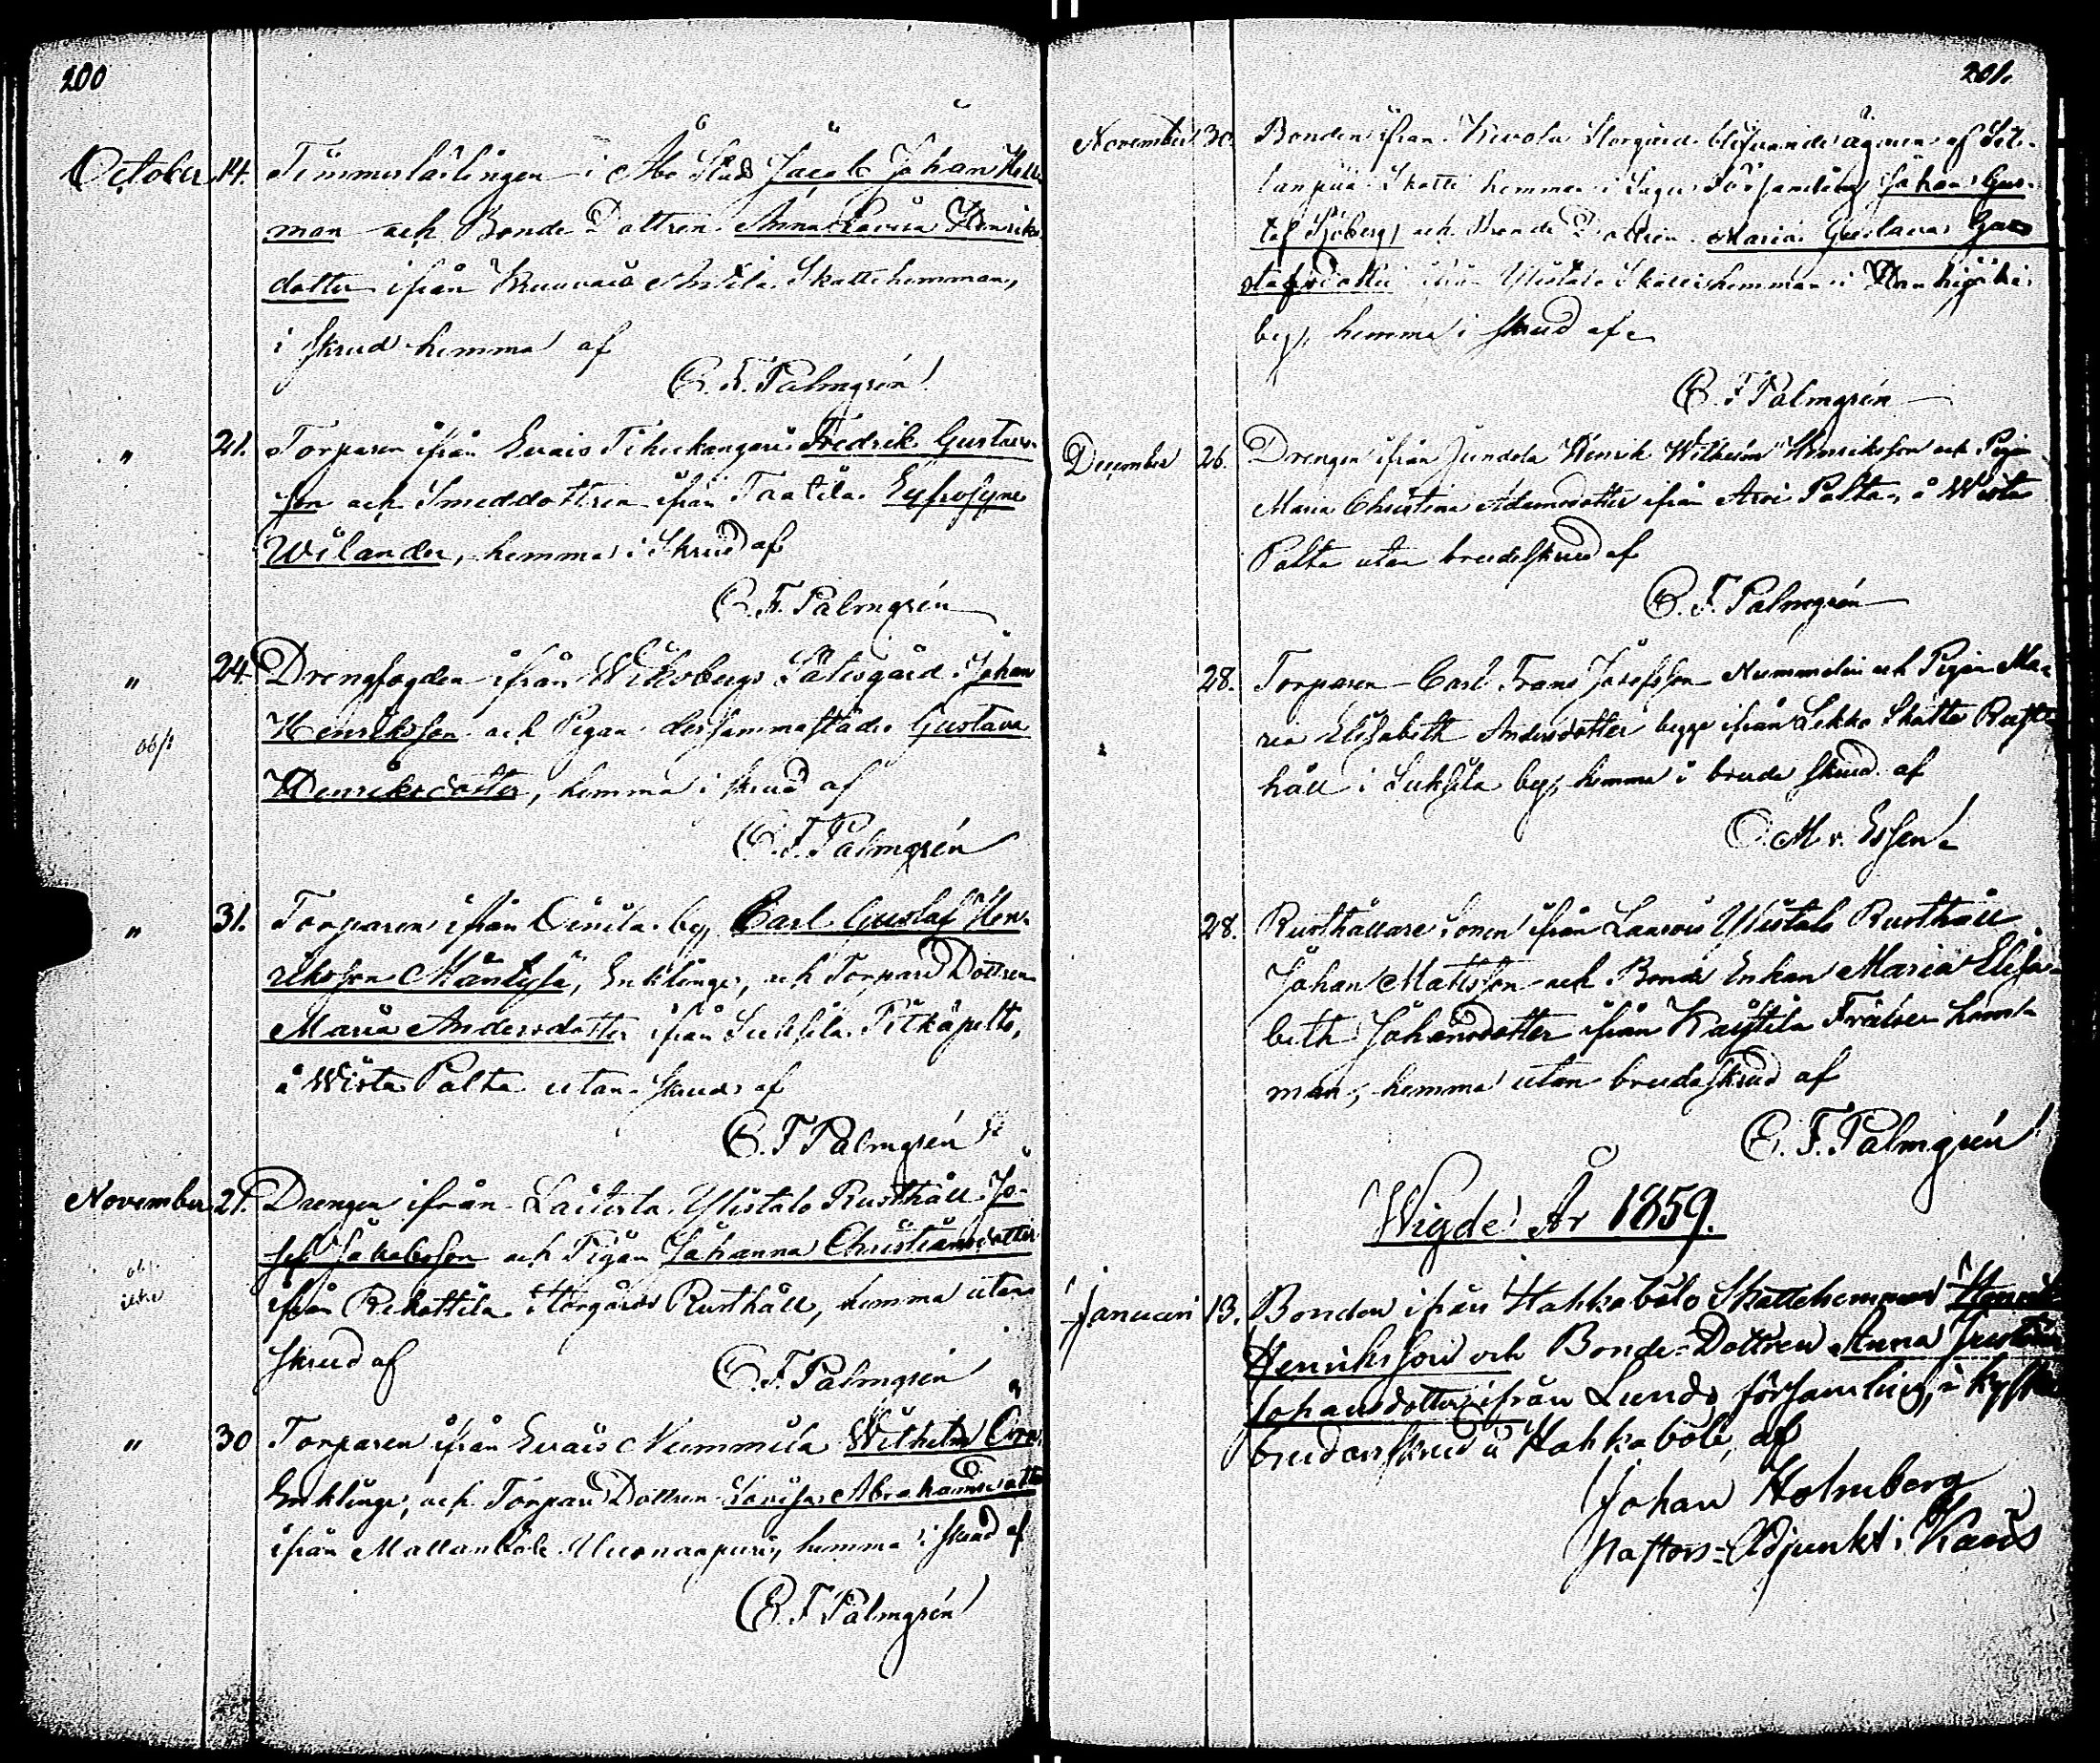 200
October 14. Timmerlärlingen i Åbo Stad Jacob Johan Hell-
man och Bonde Dottren Anna Lovisa Henriks
dotter ifrån Anttila Skattehemman,
i skrud hemma af
C. F. Palmgrén
" 21. Torparen ifrån Evais Fredrik Gustafs-
son och Smeddottren ifrån Taatila Eufrosyne
Wilander, hemma i Skrud af
C. F. Palmgrén
" 24. Drengfogden ifrån Wiksbergs Säterigård Johan
obs Henriksson och Pigan dersammastädes Gustava
Henriksdotter, hemma i skrud af
C. F. Palmgrén
" 31. Torparen ifrån Oinila by Carl Gustaf Hen-
riksson Mäntylä, Enklinge, och Torpare Dottren
Maria Andersdotter ifrån Suksela Pitkäpelto,
å Wista Palta utan skrud af
C. F. Palmgrén
November 21. Drengen ifrån Laiterla Ylistalo Rusthåll Jo-
sef Jakobsson och Pigan Johanna Christiansdotter
ifrån Rekottila Storgårds Rusthåll, hemma utan
skrud af
C. F. Palmgrén
" 30 Torparen ifrån Evais Nummila Wilhelm
Enklinge, och Torpare Dottren Lovisa Abrahamsdotter
ifrån Mallanböle hemma i skrud af
C. F. Palmgrén
201.
November 30. Bonden ifrån Kevola Storgård blifvande ägaren af
Skatte hemman i Sagu Församling Johan Gus-
taf Sjöberg och Bonde Dottren Maria Gustava Gu-
stafsdotter ifrån Ylistalo Skattehemman i Hanhijoki
by, hemma i skrud af
C. F. Palmgrén
December 26. Drengen ifrån Junnola Henrik Wilhelm Henriksson och Pigan
Maria Christina Adamsdotter ifrån Arvi Palta, å Wista
Palta utan brudeskrud af
C. F. Palmgrén
28. Torparen Carl Frans Josefsson Nummelin och Pigan Ma-
ria Elisabeth Andersdotter begge ifrån Lekko Skatte Rust
håll i Suksela by, hemma i brude skrud af
C. M. v. Essen
28. Rusthållare sonen ifrån Laurois Ylistalo Rusthåll
Johan Mattsson och Bonde Enkan Maria Elisa-
beth Johansdotter ifrån Kaystila Frälse hem-
man, hemma utan brudeskrud af
C. F. Palmgrén
Wigde År 1859.
Januari 13. Bonden ifrån Hahkaböle Skattehemman Henrik
Henriksson och Bonde-Dottren Anna Justina
Johansdotter ifrån Lundo församling, i
brudarskrud å Hahkaböle, af
Johan Holmberg
Pastors-Adjunkt i Karis